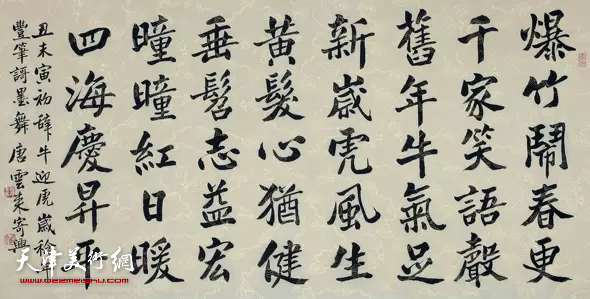 爆竹鬧春更
千家笑語聲
舊年牛氣足
新歲虎風生
黃髮心猶健
垂髫志益宏
曈曈紅日暖
四海慶昇平
丑末寅初辭牛迎虎歲稔
豐筆謌墨舞唐雲來寄興
天津美術網
www.022meishu.com